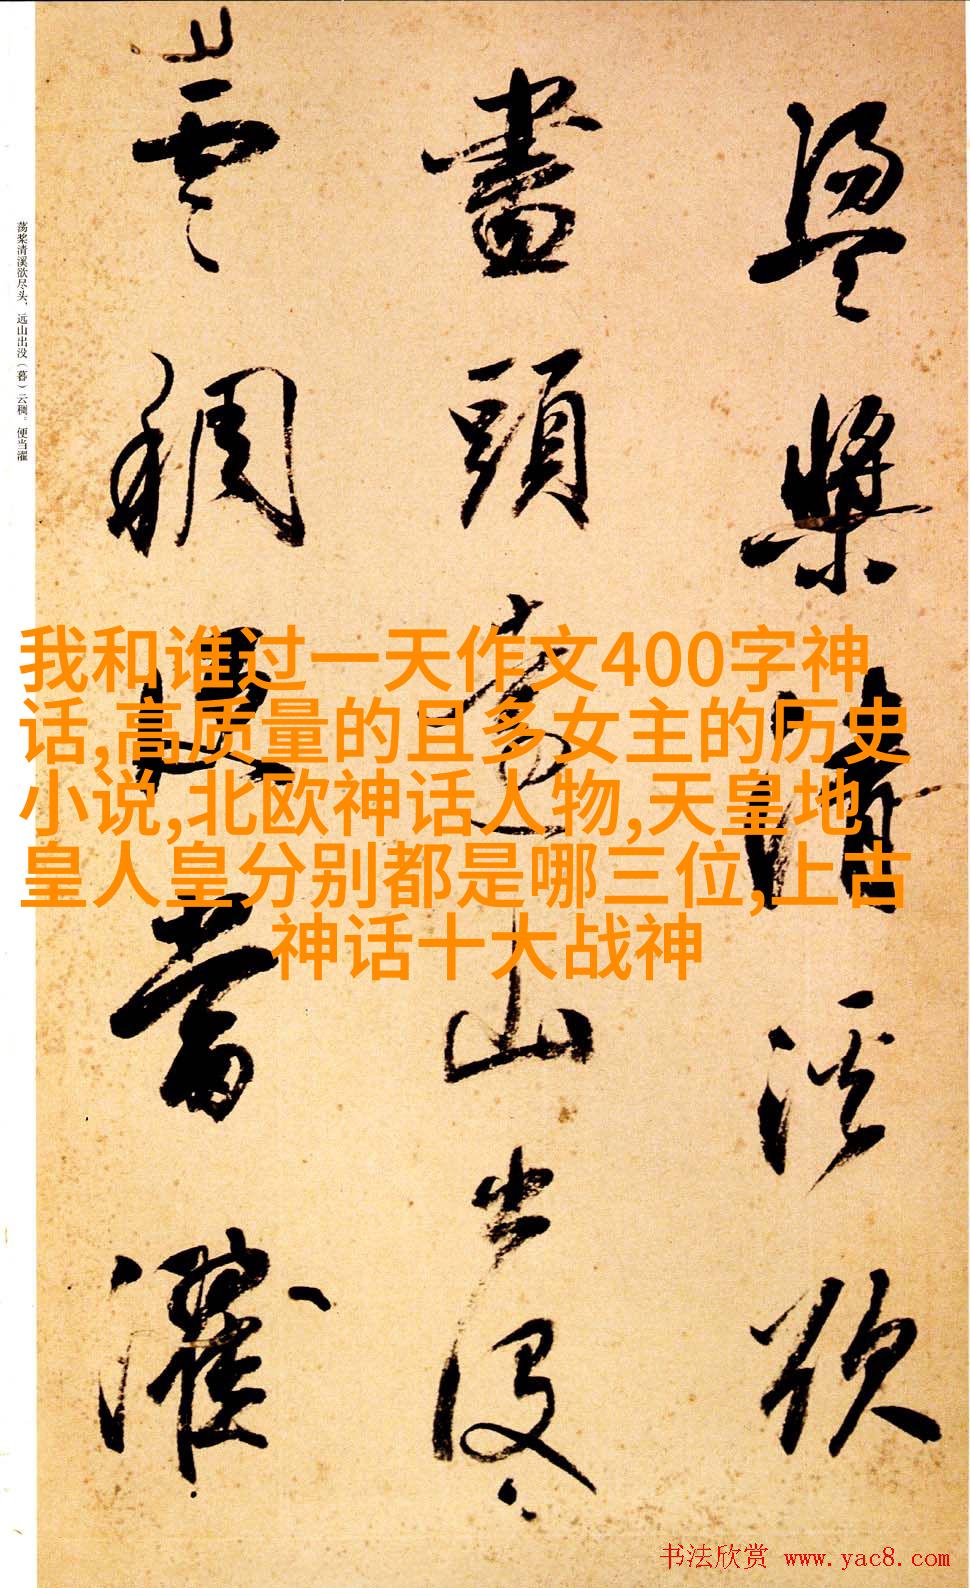 盪槳清溪欲
盡頭遠山出没
雲稠便當濯
荡桨清溪欲尽头，远山出没（暮）云稠。便当濯
我和谁过一天作文400字神
话,高质量的且多女主的历史
小说,北欧神话人物,天皇地
皇人皇分别都是哪三位,上古
神话十大战神
书法欣赏 www.yac8.com